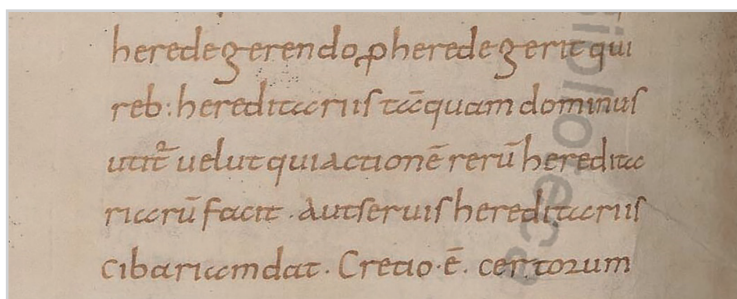 herede gerendo ꝓ herede gerit qui
reb: hereditariis tāquam dominus
utit᷑ uelut qui actionē rerū heredita
riarū facit. Aut seruis hereditariis
cibariam dat. Cretio·ē. certorum
Biblioteca